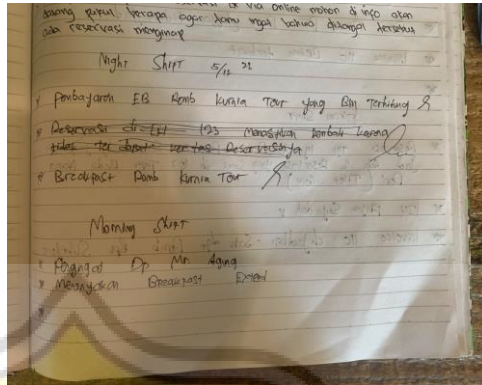 datang pukul berapa agar tamu ingat bahwa ditanggal tersebut
ada reservasi menginap
Night Shift 5/12 21
Pembayaran EB Romb Kurnia Tour yang Blm Terhitung
Reservasi di 123 Menanyakan kembali karena
tidak ter dapat kertas Reservasinya
Breakfast Romb Kurnia Tour
Morning Shift
Dp Mr. Agung
Menanyakan Breakfast Extend